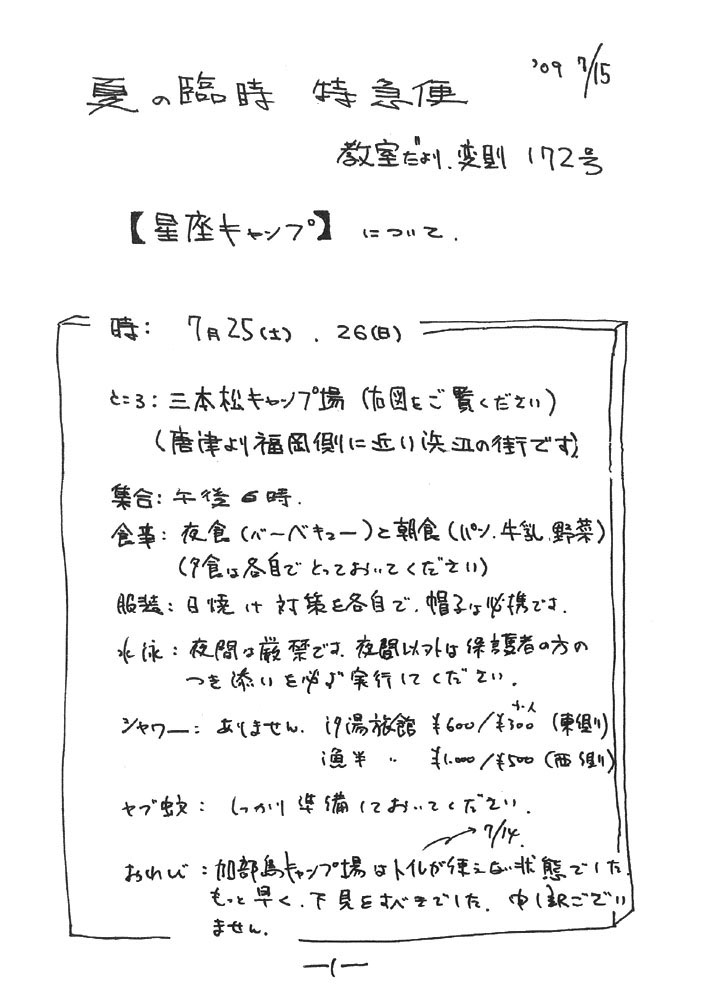 '09 7/15
夏の臨時 特急便
教室だより、変則 172号
【星座キャンプ】 について.
時: 7月25(土) . 26(日)
ところ: 三本松キャンプ場 (右図をご覧ください)
(唐津より福岡側に近い浜玉の街です)
集合: 午後6時.
食事: 夜食(バーベキュー)と朝食(パン、牛乳、野菜)
(夕食は各自でとっておいてください)
服装: 日焼け対策を各自で、帽子は必携です.
水泳: 夜間は厳禁です、夜間以外は保護者の方の
つき添いを必ず実行してください.
シャワー: ありません. 汐湯旅館 ¥600/¥300 (東側)
小人
漁半 〃 ¥1,000/¥500 (西側)
ヤブ蚊: しっかり準備しておいてください.
7/14.
おわび: 加部島キャンプ場はトイレが使えない状態でした.
もっと早く、下見をすべきでした. 申し訳ござい
ません.
—1—